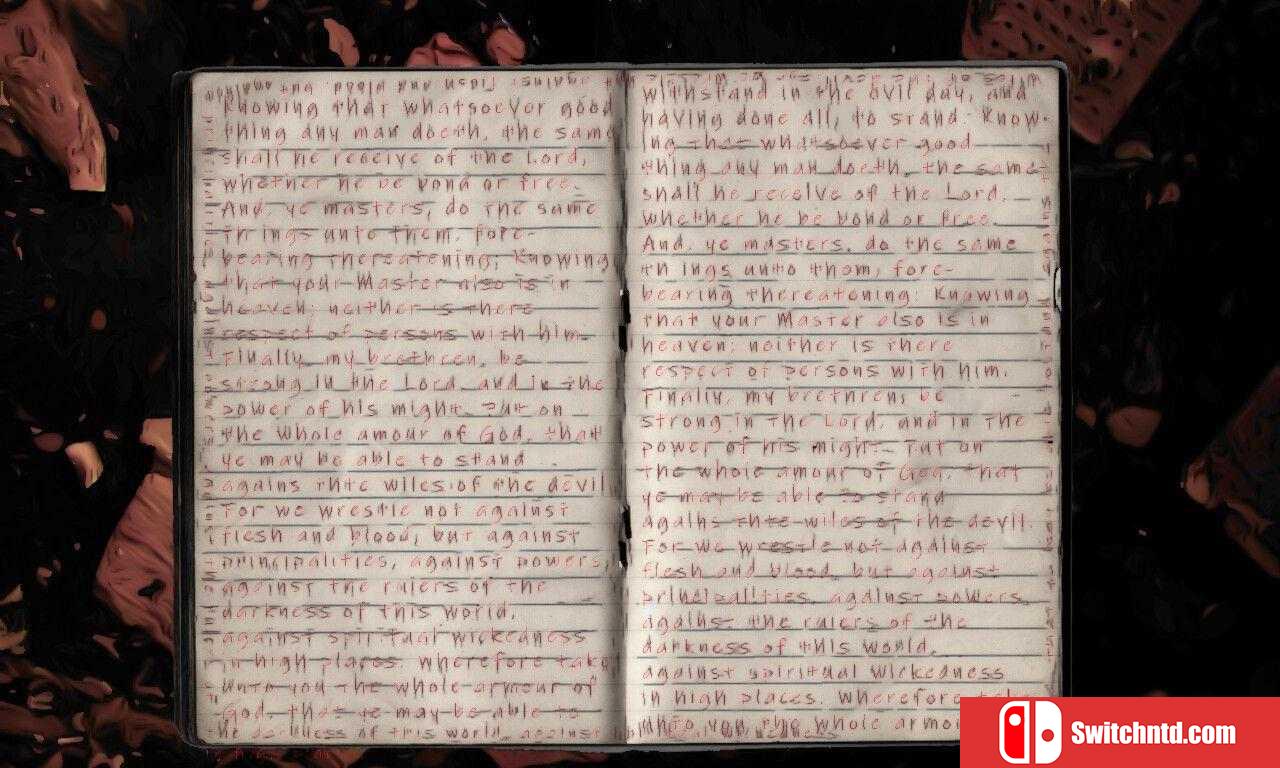 Knowing that whatsoever good
thing any man doeth, the same
shall he receive of the Lord,
whether he be bond or free.
And, ye masters, do the same
things unto them, fore-
bearing thereatening: Knowing
that your Master also is in
heaven; neither is there
respect of persons with him.
Finally, my brethren, be
strong in the Lord, and in the
power of his might. Put on
the whole amour of God, that
ye may be able to stand
agains thte wiles of the devil
For we wrestle not against
flesh and blood, but against
principalities, against powers,
against the rulers of the
darkness of this world,
against spiritual wickedness
in high places. Wherefore take
unto you the whole armour of
God, that ye may be able to
the darkness of this world, against
withstand in the evil day, and
having done all, to stand. Know-
ing that whatsoever good
thing any man doeth, the same
shall he receive of the Lord.
whether he be bond or free.
And, ye masters, do the same
th ings unto them, fore-
bearing thereatening: Knowing
that your Master also is in
heaven; neither is there
respect of persons with him.
Finally, my brethren, be
strong in the Lord, and in the
power of his might. Put on
the whole amour of God, that
ye may be able to stand
agains thte wiles of the devil.
For we wrestle not against
flesh and blood, but against
principalities, against powers,
against the rulers of the
darkness of this world,
against spiritual wickedness
in high places. Wherefore take
unto you the whole armo
Switchntd.com